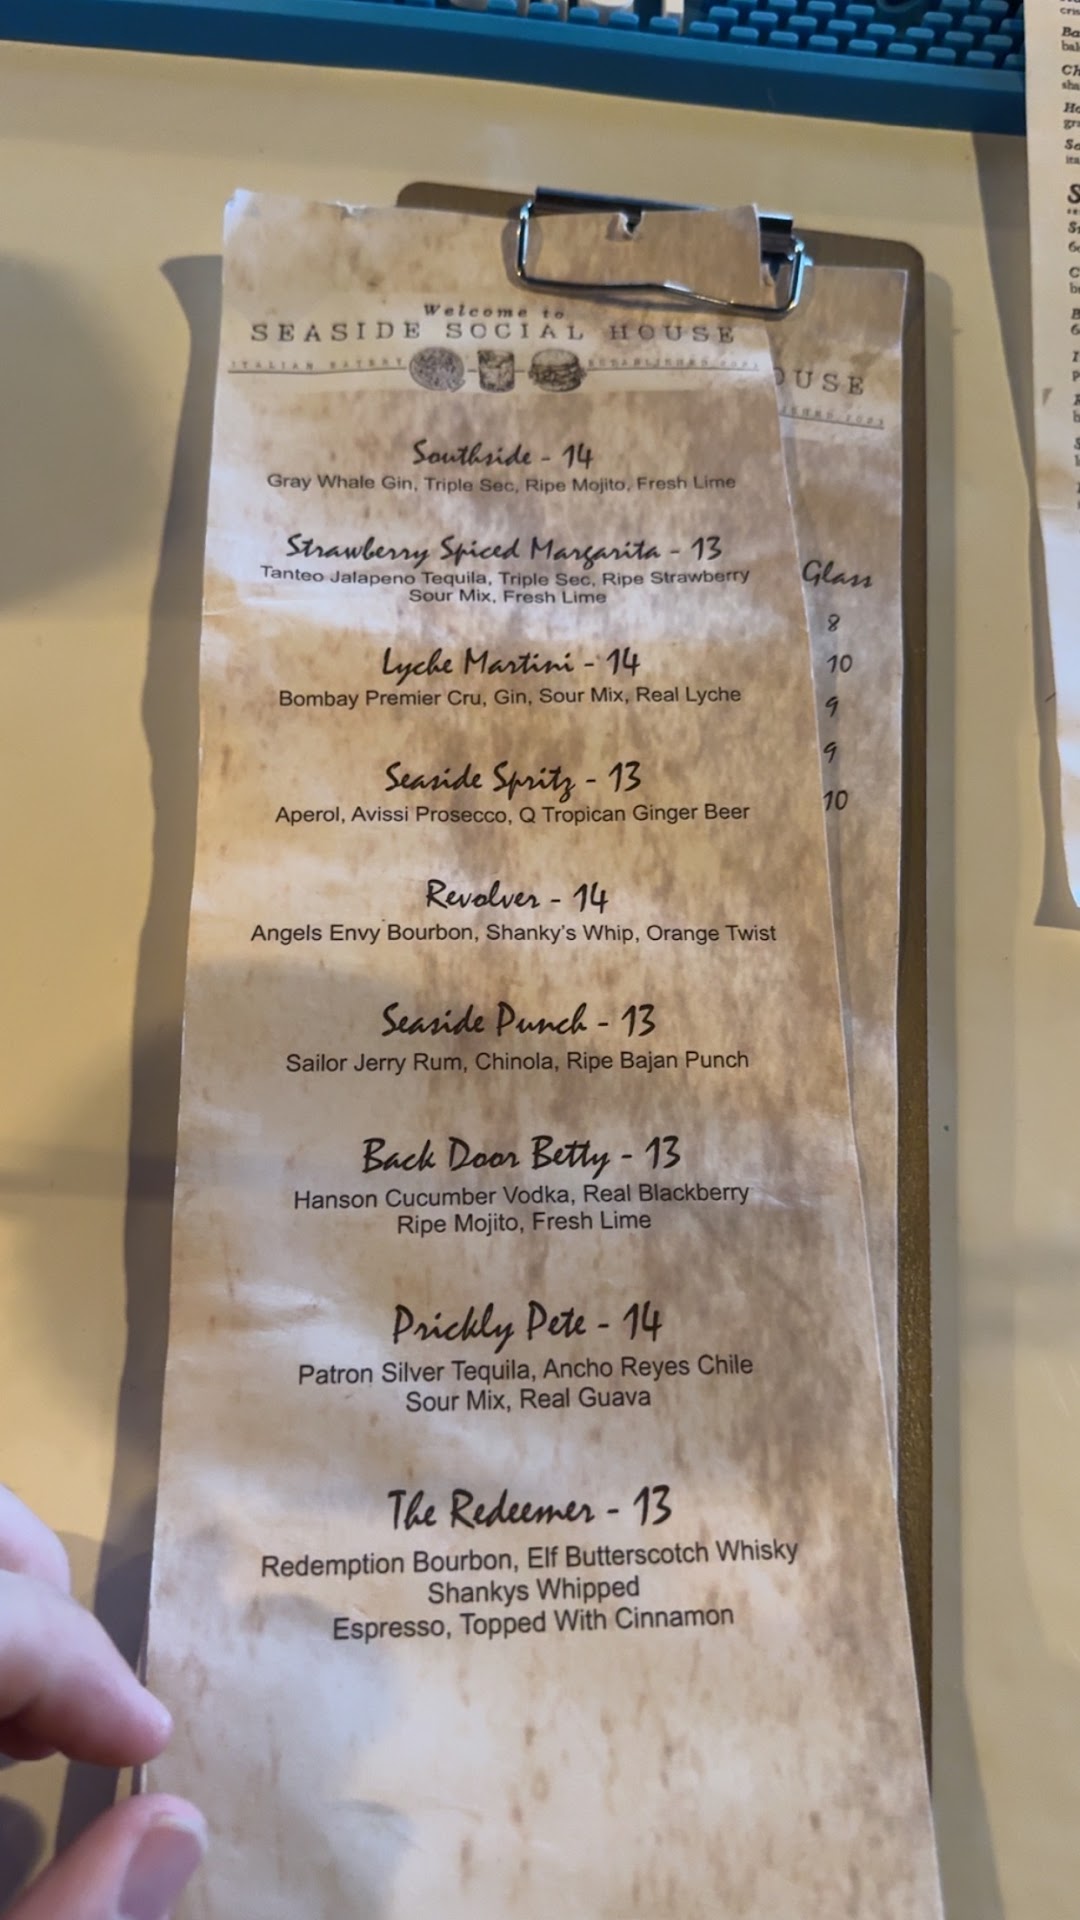 Welcome to
SEASIDE SOCIAL HOUSE
ITALIAN EATERY
Southside - 14
Gray Whale Gin, Triple Sec, Ripe Mojito, Fresh Lime
Strawberry Spiced Margarita - 13
Tanteo Jalapeno Tequila, Triple Sec, Ripe Strawberry
Sour Mix, Fresh Lime
Lyche Martini - 14
Bombay Premier Cru, Gin, Sour Mix, Real Lyche
Seaside Spritz - 13
Aperol, Avissi Prosecco, Q Tropican Ginger Beer
Revolver - 14
Angels Envy Bourbon, Shanky's Whip, Orange Twist
Seaside Punch - 13
Sailor Jerry Rum, Chinola, Ripe Bajan Punch
Back Door Betty - 13
Hanson Cucumber Vodka, Real Blackberry
Ripe Mojito, Fresh Lime
Prickly Pete - 14
Patron Silver Tequila, Ancho Reyes Chile
Sour Mix, Real Guava
The Redeemer - 13
Redemption Bourbon, Elf Butterscotch Whisky
Shankys Whipped
Espresso, Topped With Cinnamon
OUSE
Glass
8
10
9
9
10